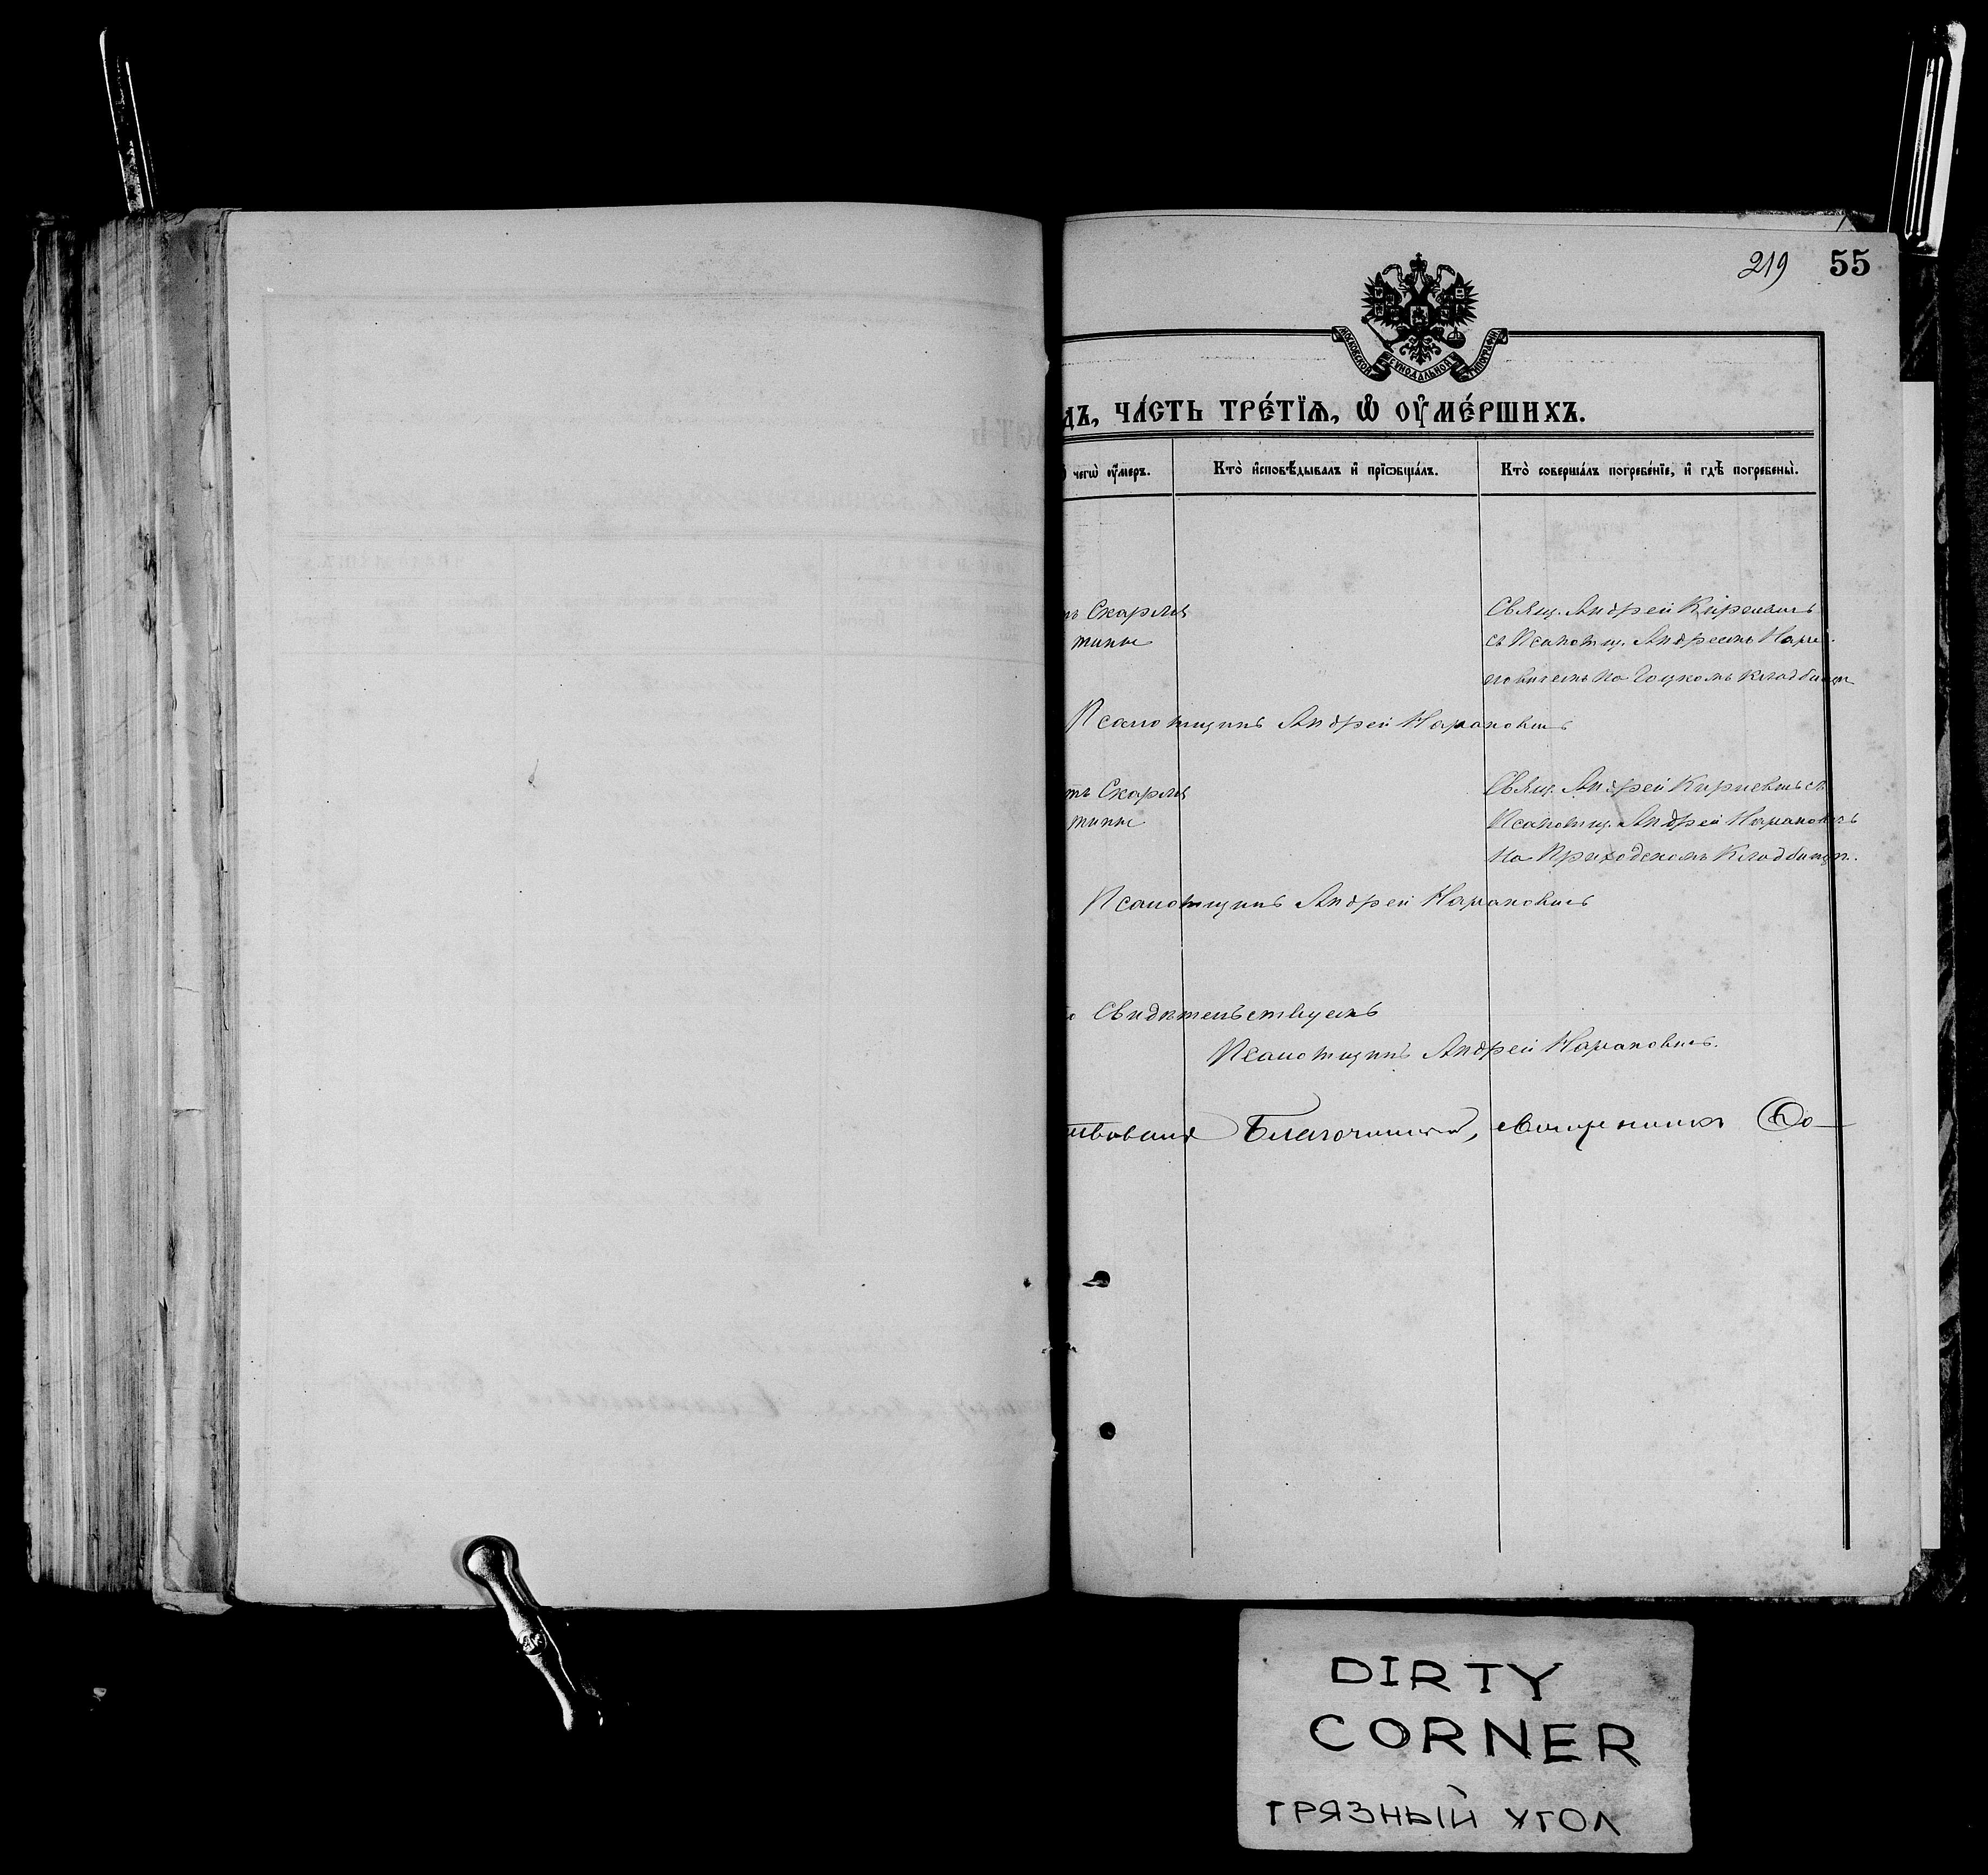 219 55
МОСКОВСКОЙ СѴНОДАЛЬНОЙ ТИПОГРАФІИ
дъ, ча́сть тре́тїѧ, ѡ҆ ᲂу҆ме́ршихъ.
чегѡ̀ ᲂу҆́меръ. Кто̀ и҆сповѣ́дывалъ и҆ прїѡбща́лъ. Кто̀ соверша́лъ погребе́нїе, и҆ гдѣ̀ погребены̀.
Скарла Свящ. Андрей Киревичъ
тины съ Псаломщ. Андреемъ Нара
новичемъ на кладбищѣ
Псаломщикъ Андрей Нарановичъ
Скарла Свящ. Андрей Киревичъ съ
тины Псаломщ. Андрей Нарановичъ
на Приходскомъ кладбищѣ.
Псаломщикъ Андрей Нарановичъ
Свидѣтельствуемъ
Псаломщикъ Андрей Нарановичъ.
Благочинный, священникъ Ѳо
DIRTY
CORNER
ГРЯЗНЫЙ УГОЛ